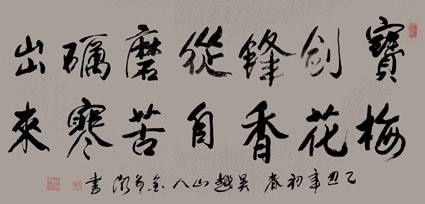 寶劍鋒從磨礪出
梅花香自苦寒來
乙丑年初春 吳越山人 書